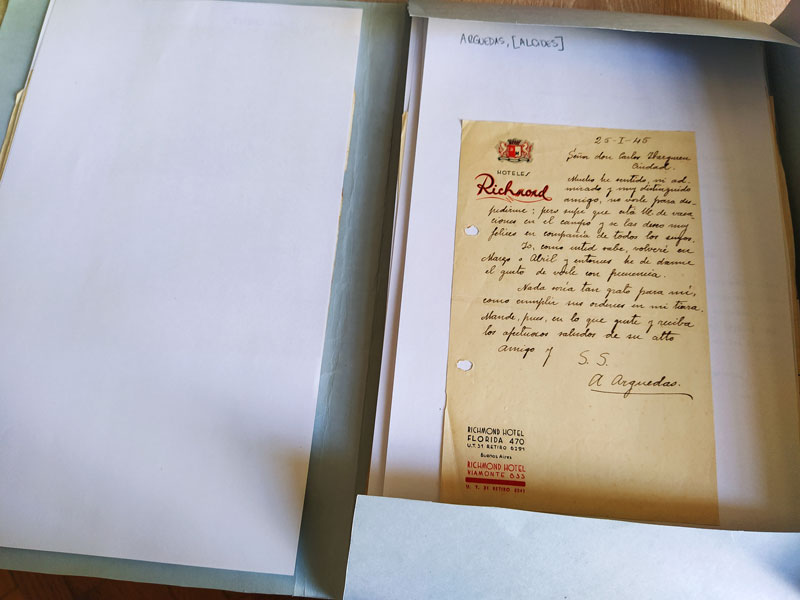 ARGUEDAS, [ALCIDES]
25-I-45
Señor don Carlos Ibarguren
Ciudad.
HOTELES
Richmond
Mucho he sentido, mi ad-
mirado y muy distinguido
amigo, no verle para des-
pedirme; pero supe que está Ud. de vaca-
ciones en el campo y se las deseo muy
felices en compañía de todos los suyos.
Yo, como usted sabe, volveré en
Marzo o Abril y entonces he de darme
el gusto de verle con frecuencia.
Nada sería tan grato para mí,
como cumplir sus ordenes en mi tierra.
Mande, pues, en lo que guste y reciba
los afectuosos saludos de su alto
amigo y S. S.
A Arguedas.
RICHMOND HOTEL
FLORIDA 470
U.T. 31 RETIRO 6291
Buenos Aires
RICHMOND HOTEL
VIAMONTE 835
U. T. 31 RETIRO